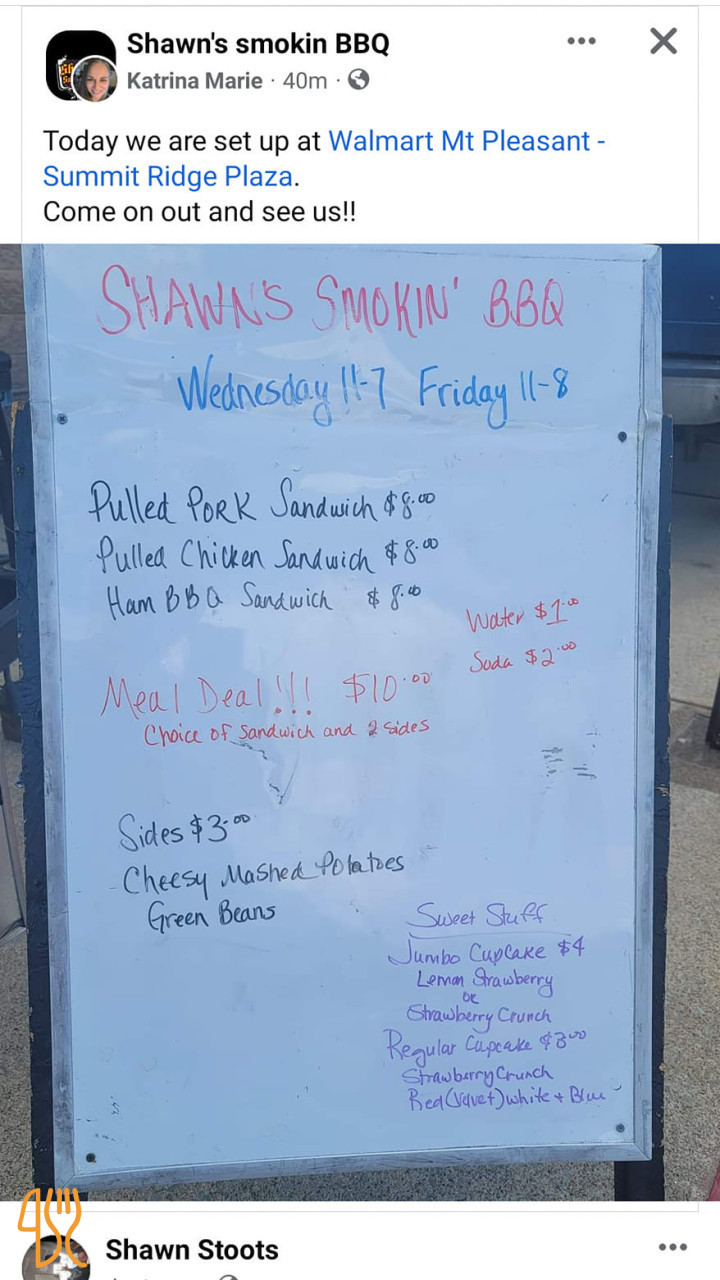 Shawn's smokin BBQ
Katrina Marie · 40m ·
Today we are set up at Walmart Mt Pleasant -
Summit Ridge Plaza.
Come on out and see us!!
SHAWN'S SMOKIN' BBQ
Wednesday 11-7 Friday 11-8
Pulled PORK Sandwich $8.00
Pulled Chicken Sandwich $8.00
Ham BBQ Sandwich $8.00
Water $1.00
Soda $2.00
Meal Deal!!! $10.00
Choice of Sandwich and 2 Sides
Sides $3.00
Cheesy Mashed Potatoes
Green Beans
Sweet Stuff
Jumbo Cupcake $4
Lemon Strawberry
or
Strawberry Crunch
Regular Cupcake $3.00
Strawberry Crunch
Red(Velvet)white + Blue
Shawn Stoots